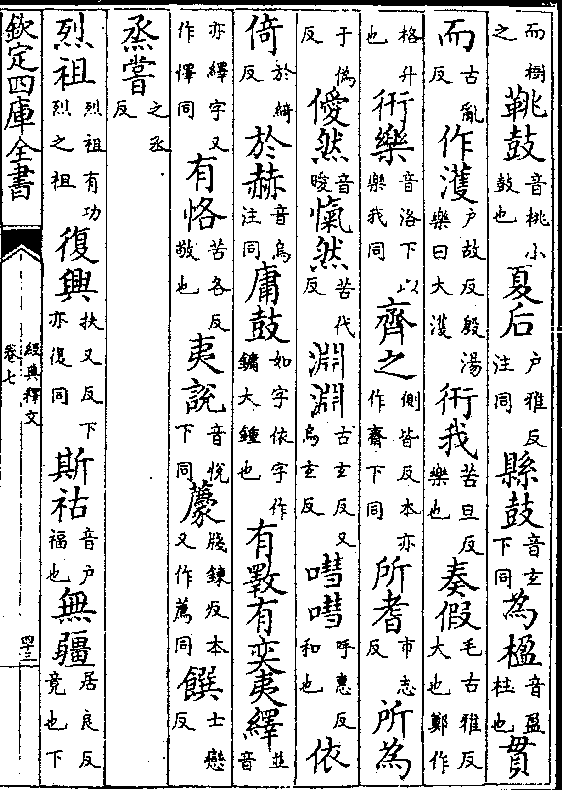 而樹之鞉鼓音桃小鼓也夏后户雅反注同縣鼓音玄下同為楹音盈柱也貫
而古亂反作濩户故反殷湯樂曰大濩衎我苦旦反樂也奏假毛古雅反大也鄭作
格升也衎樂音洛下以樂我同齊之側皆反本亦作齋下同所耆市志反所為
于偽反僾然音曖愾然苦代反淵淵古玄反又烏玄反嘒嘒呼惠反和也依
倚於綺反於赫音烏注同庸鼓如字依字作鏞大鍾也有斁有奕夷繹並音
亦繹字又作懌同有恪苦各反敬也夷說音悅下同牋鍊反本又作薦同饌士戀反
烝嘗之丞反
烈祖烈祖有功烈之祖復興扶又反下亦復同斯祜音户福也無疆居良反竟也下
欽定四庫全書
經典釋文
卷七
四三